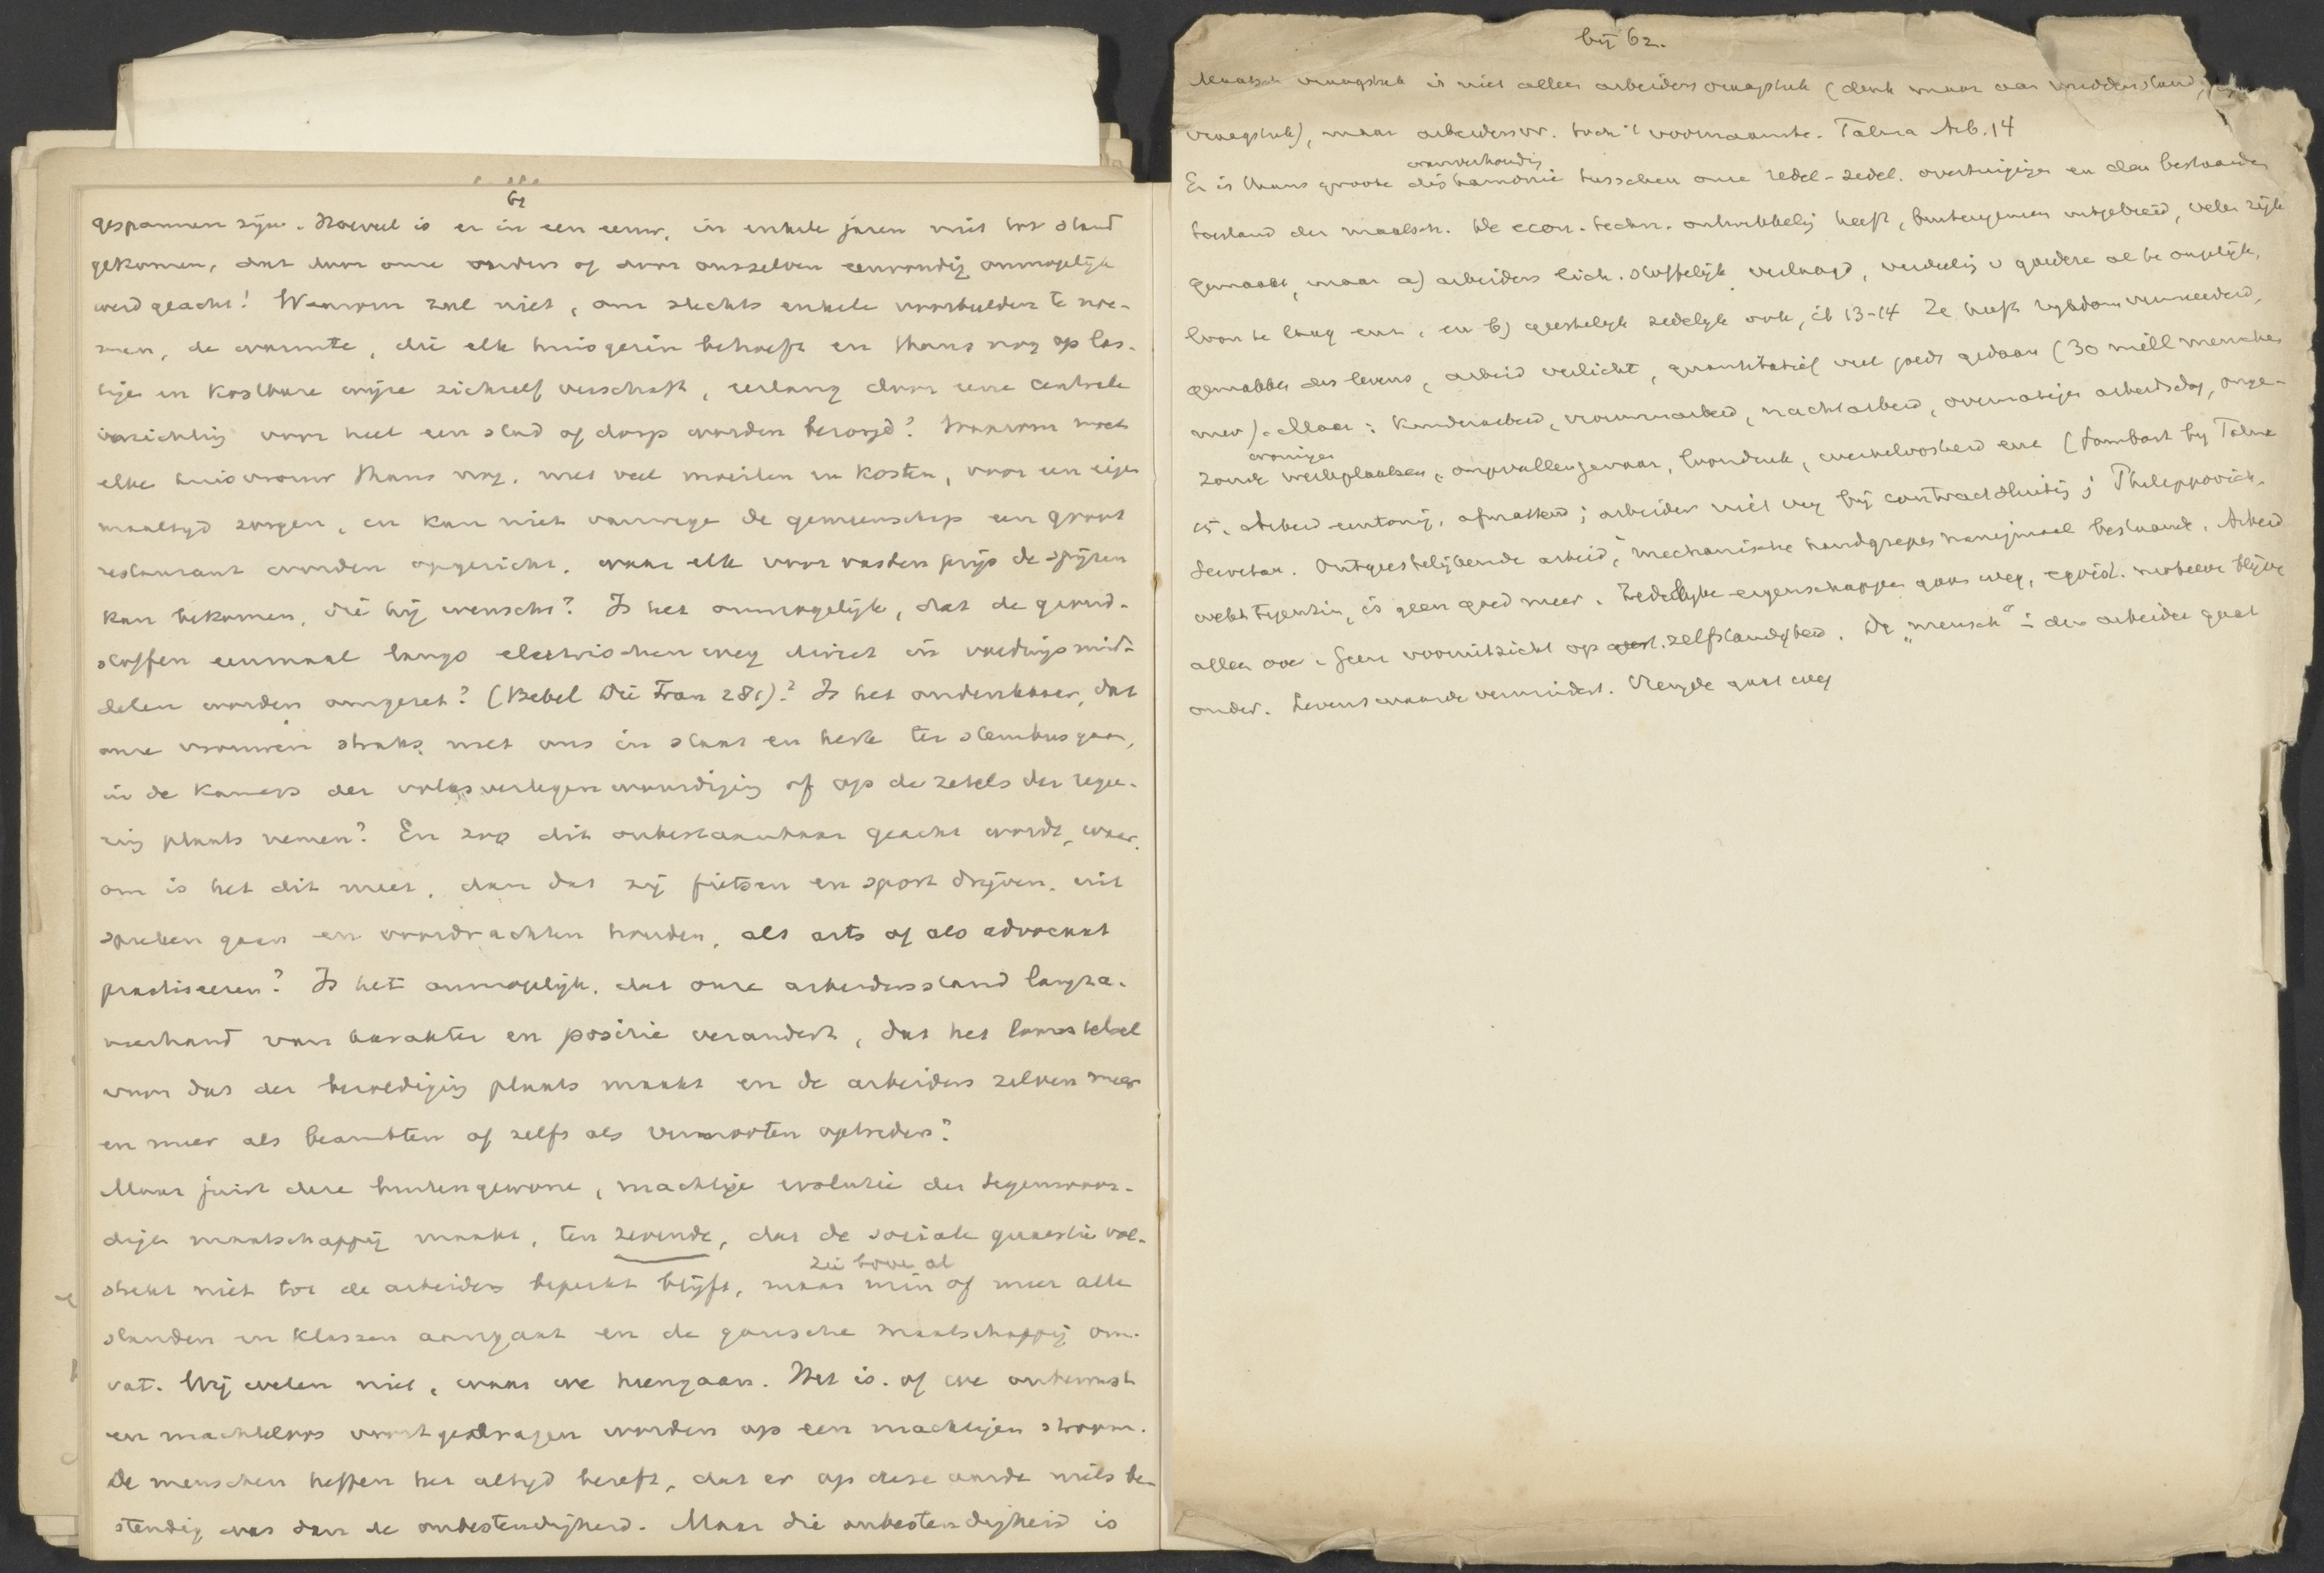 62
gespannen zijn. Hoeveel is er in een eeuw, in enkele jaren niet tot stand
gekomen, dat door onze ouders of door onszelven eenvoudig onmogelijk
werd geacht! Waarom zal niet, om slechts enkele voorbeelden te noe-
men, de warmte, die elk huisgezin behoeft en thans nog op las-
tige en kostbare wijze zichzelf verschaft, eerlang door eene centrale
inrichting voor heel een stad of dorp worden bezorgd? Waarom moet
elke huisvrouw thans nog, met veel moeiten en kosten, voor een eigen
maaltijd zorgen, en kan niet vanwege de gemeenschap een groot
restaurant worden opgericht, waar elk voor vasten prijs de spijzen
kan bekomen, die hij wenscht? Is het onmogelijk, dat de grond-
stoffen eenmaal langs electrischen weg direct in voedingsmid-
delen worden omgezet? (Bebel Die Frau 281)? Is het ondenkbaar, dat
onze vrouwen straks met ons in staat en kerk ter stembus gaan,
in de kamers der volksvertegenwoordiging of op de zetels der regee-
ring plaats nemen? En zoo dit onbestaanbaar geacht wordt, waar-
om is het dit meer, dan dat zij fietsen en sport drijven, uit
spreken gaan en voordrachten houden, als arts of als advocaat
practiseeren? Is het onmogelijk, dat onze arbeidersstand langza-
merhand van karakter en positie verandert, dat het loonstelsel
voor dat der bezoldiging plaats maakt en de arbeiders zelven meer
en meer als beambten of zelfs als vennooten optreden?
Maar juist deze buitengewone, machtige evolutie der tegenwoor-
dige maatschappij maakt, ten zevende, dat de sociale quaestie vol-
zie boven al
strekt niet tot de arbeiders beperkt blijft, maar min of meer alle
standen en klassen aangaat en de gansche maatschappij om-
vat. Wij weten niet, waar we heengaan. Het is, of we onbewust
en machteloos voortgedragen worden op een machtigen stroom.
De menschen heffen het altijd beseft, dat er op deze aarde niets be-
stendig was dan de onbestendigheid. Maar die onbestendigheid is
bij 62.
Maatsch. vraagstuk is niet alleen arbeidersvraagstuk (denk maar aan middenstand,
vraagstuk), maar arbeidersvr. toch 't voornaamste. Talma Arb. 14
onverhoudig
Er is thans groote disharmonie tusschen onze redel-zedel. overtuigingen en den bestaanden
toestand der maatsch. De econ.-techn. ontwikkeling heeft, buitengemeen uitgebreid, velen rijk
gemaakt, maar a) arbeiders lich. stoffelijk verlaagd, verdeeling v goederen al te ongelijk,
loon te laag enz., en b) geestelijk zedelijk ook, ib 13-14 Ze heeft rijkdom vermeerderd,
gemakken des levens, arbeid verlicht, quantitatief veel goeds gedaan (30 mill menschen
meer). Maar: kinderarbeid, vrouwenarbeid, nachtarbeid, overmatige arbeidsdag, onge-
woningen
zonde werkplaatsen, ongevallengevaar, loondruk, werkeloosheid enz (Sombart bij Talma
15. Arbeid eentonig, afmattend; arbeider niet vrij bij contractsluiting; Philippovich,
Secretan. Ontgeestelijkende arbeid, mechanische handgrepen bestaande. Arbeid
wekt tegenzin, is geen goed meer. Zedelijke eigenschappen gaan weg, egoist. motieven blijven
alleen over. Geen vooruitzicht op zelfstandigheid. De „mensch“ in den arbeider gaat
onder. Levenswaarde vermindert. Vreugde gaat weg